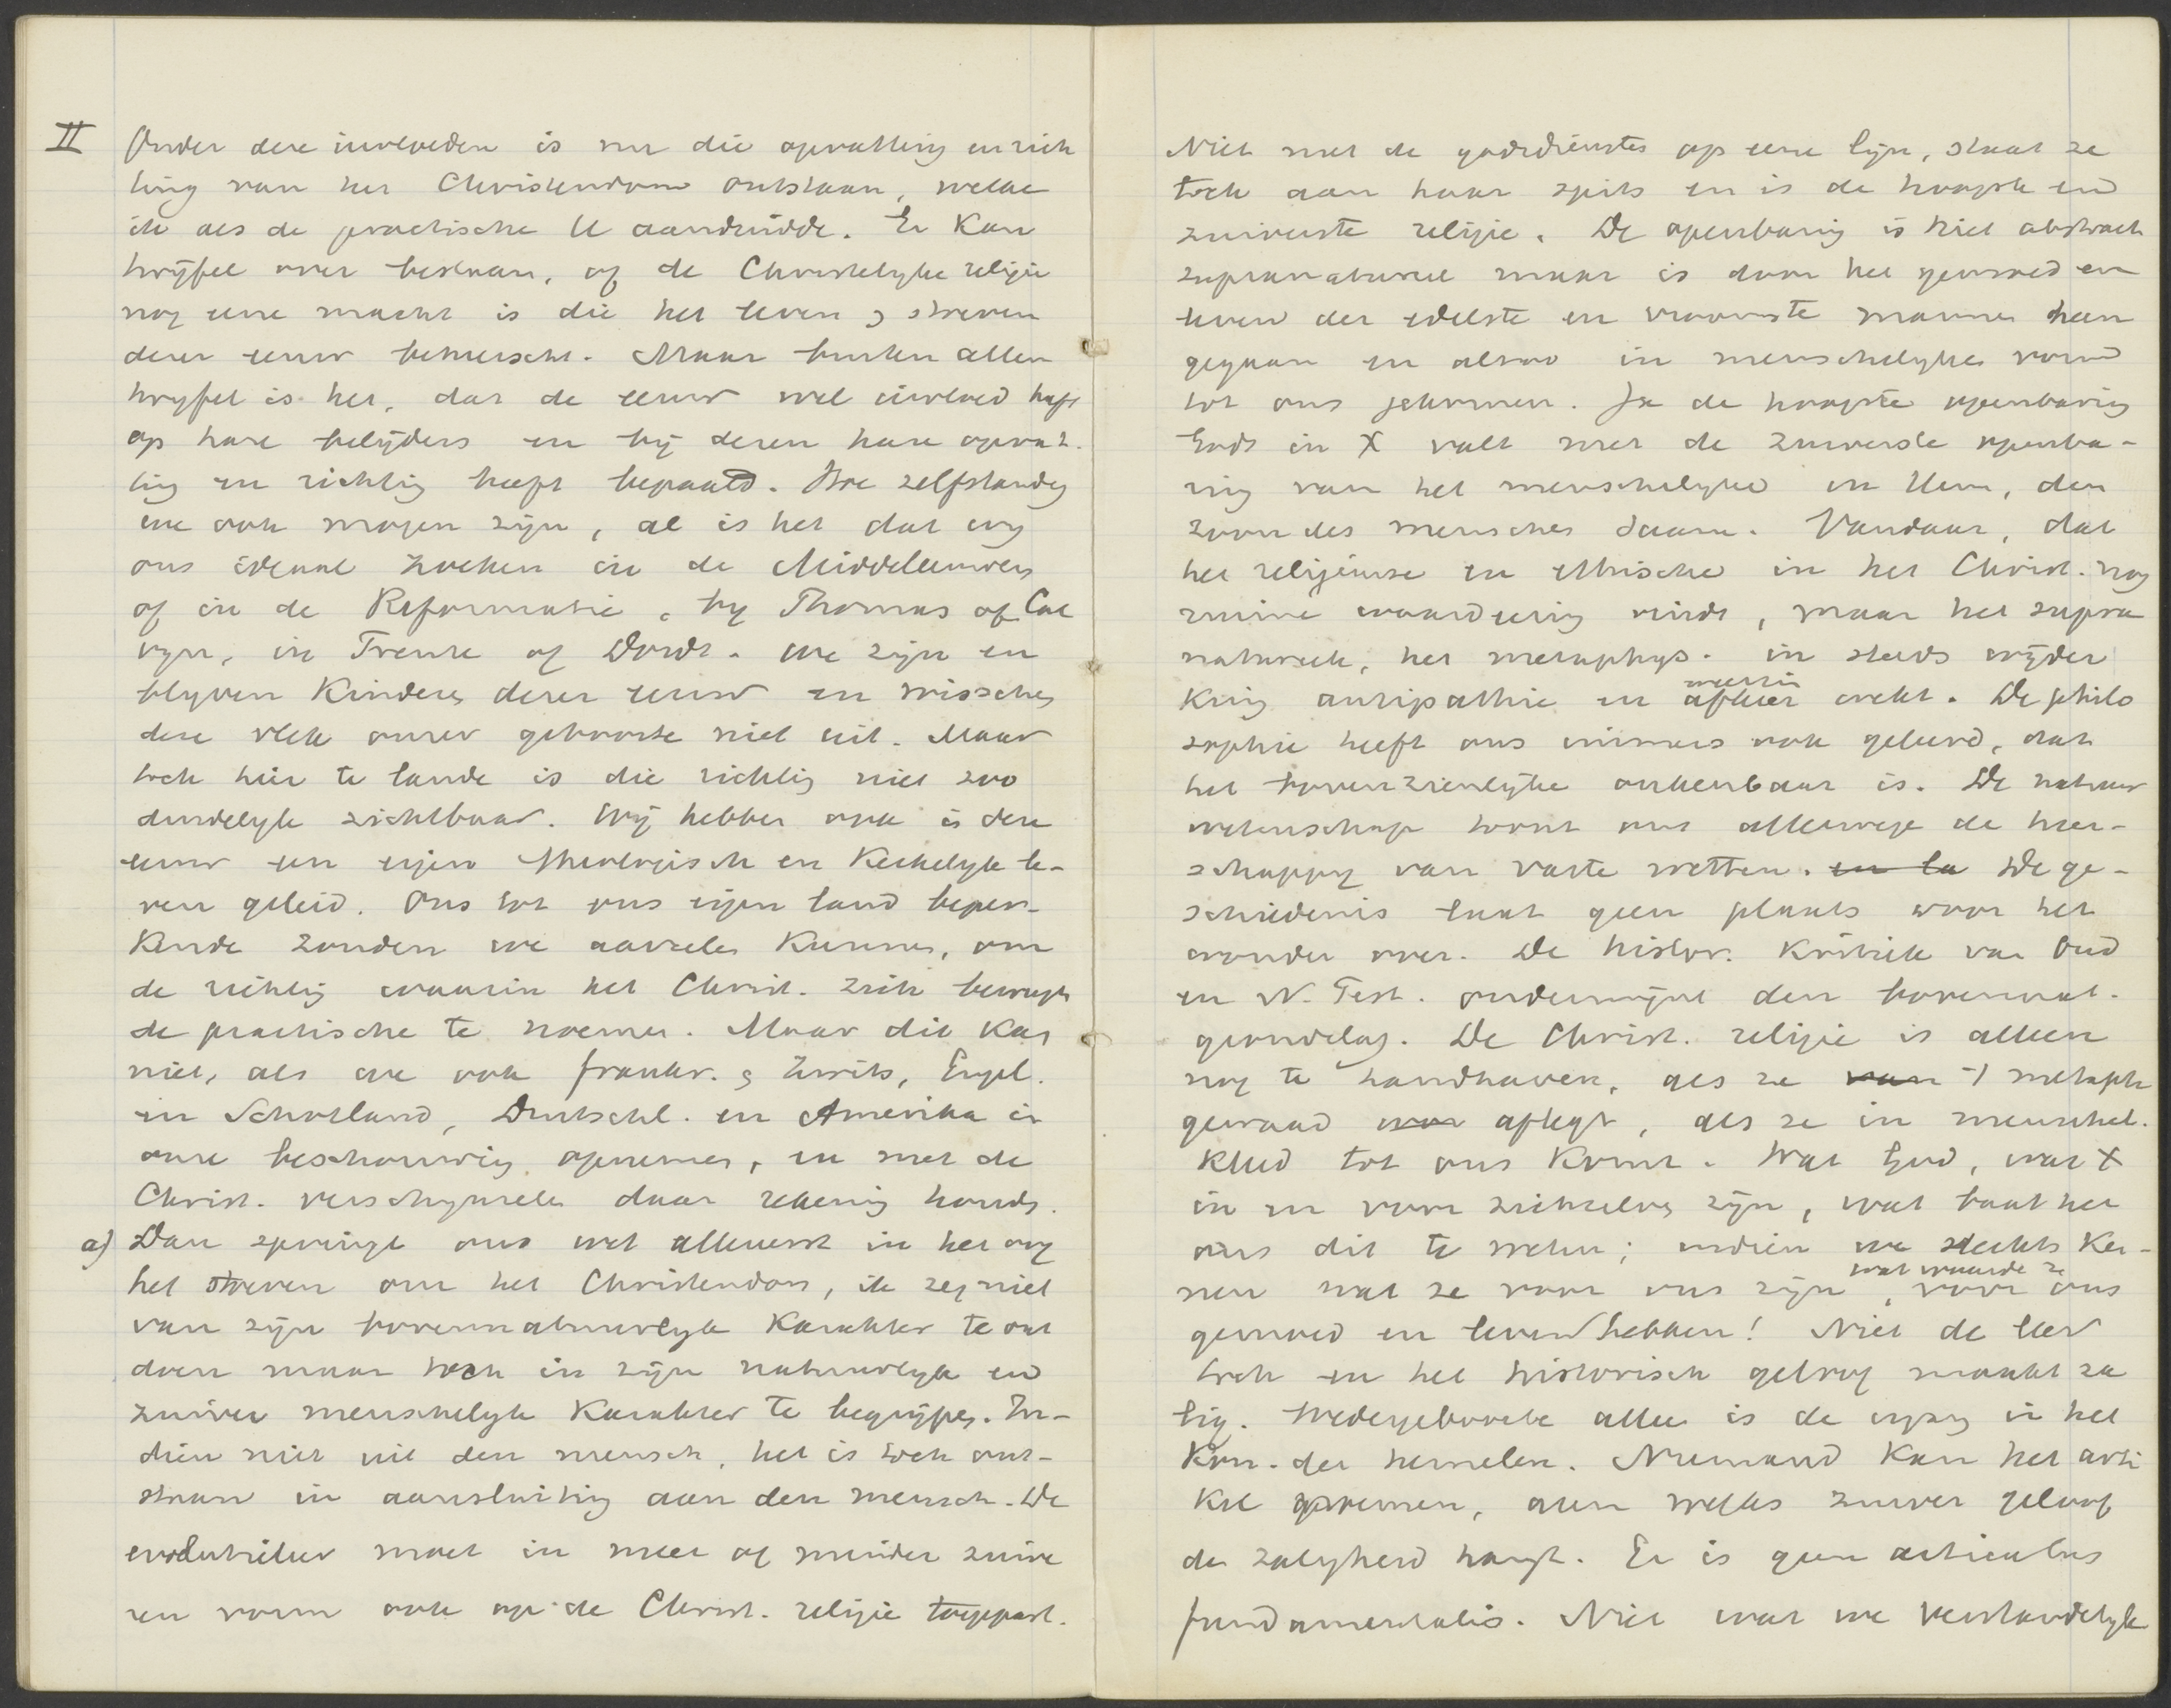 II Onder deze invloeden is nu die opvatting en rich
ting van het Christendom ontstaan, welke
ik als de practische U aanduidde. Er kan
twijfel over bestaan, of de Christelyke religie
nog eene macht is die het leven & streven
dezer eeuw beheerscht. Maar buiten allen
twyfel is het, dat de eeuw wel invloed heeft
op hare belijders en bij dezen hare opvat.
ting en richting heeft bepaald. Hoe zelfstandig
we ook mogen zijn, al is het dat wy
ons ideaal zoeken in de Middeleeuwen
of in de Reformatie, by Thomas of Cal
vyn, in Trente of Dordt. we zijn en
blyven kinderen dezer eeuw en wisschen
deze vlek onzer geboorte niet uit. Maar
toch hier te lande is die richting niet zoo
duidelyk zichtbaar. Wij hebben ook in deze
eeuw een eigen theologisch en kerkelyk le-
ven geleid. Ons tot ons eigen land beper-
kende zouden we aarzelen kunnen, om
de richting waarin het Christ. zich beweegt
de practische te noemen. Maar dit kan
niet, als we ook Frankr. & Zwits, Engel.
en Schotland, Duitschl. en Amerika in
onze beschouwing opnemen, en met de
Christ. verschynselen daar rekening houden.
a) Dan springt ons wel allereerst in het oog
het streven om het Christendom, ik zeg niet
van zijn bovennatuurlyk karakter te ont
doen maar toch in zijn natuurlyk en
zuiver menschelyk karakter te begrijpen. In-
dien niet uit den mensch, het is toch ont-
staan in aansluiting aan den mensch. De
evolutieleer moet in meer of minder zuive
ren vorm ook op de Christ. religie toegepast.
Niet met de godsdiensten op eene lijn, staat ze
toch aan haar spits en is de hoogste en
zuiverste religie. De openbaring is niet abstract
supranatureel maar is door het gemoed en
leven der edelste en vroomste mannen heen
gegaan en alzoo in menschelyken vorm
tot ons gekomen. Ja de hoogste openbaring
Gods in X valt met de zuiverste openba-
ring van het menschelyke in Hem, den
zoon des menschen saam. Vandaar, dat
het religieuse en ethische in het Christ. nog
ruime waardeering vindt, maar het supra
natureele, het metaphys. in steeds wijder
kring antipathie en afkeer wekt. De philo
sophie heeft ons immers ook geleerd, dat
het bovenzienlijke onkenbaar is. De natuur
wetenschap toont ons allerwege de heer-
schappy van vaste wetten. en la De ge-
schiedenis laat geen plaats voor het
wonder over. De histor. kritiek van Oud
en N. Test. ondermijnt den bovennat.
grondslag. De Christ. religie is alleen
nog te handhaven, als ze van 't metaph
gewaad aflegt, als ze in menschel.
kleed tot ons komt. Wat God, wat X
in en voor zichzelve zijn, wat baat het
ons dit te weten; indien we slechts ken-
nen wat ze voor ons zijn, wat waarde ze voor ons
gemoed en leven hebben! Niet de leer
toch en het historisch geloof maakt za
lig. Wedergeboorte alleen is de ingang in het
kon. der hemelen. Niemand kan het arti
kel opnoemen, aan welks zuiver geloof
de zaligheid hangt. Er is geen articulus
fundamentalis. Niet wat we verstandelyk